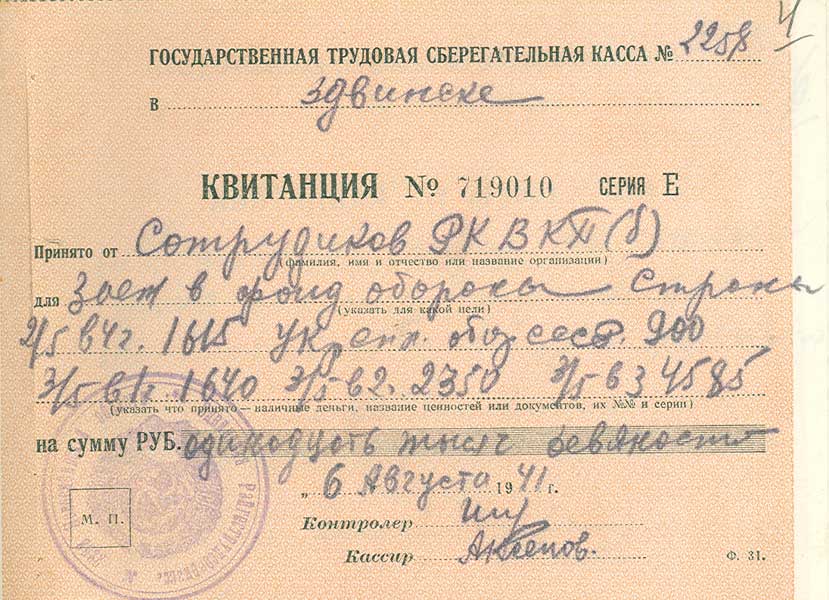 4
ГОСУДАРСТВЕННАЯ ТРУДОВАЯ СБЕРЕГАТЕЛЬНАЯ КАССА № 2258
в Здвинске
КВИТАНЦИЯ № 719010 СЕРИЯ Е
Принято от Сотрудиков РК ВКП(б)
(фамилия, имя и отчество или название организации)
для Заем в фонд обороны Страны
(указать для какой цели)
2/5 в 4 г. 1615 Укр 900
3/5 в 1г. 1640 3/5 в 2. 2350 3/5 в 3 4585
(указать что принято — наличные деньги, название ценностей или документов, их №№ и серии)
на сумму РУБ. одинадцать тысяч девяносто
„ 6 Августа 1941 г.
М. П.
Контролер
Кассир Аксенов.
Ф. 31.